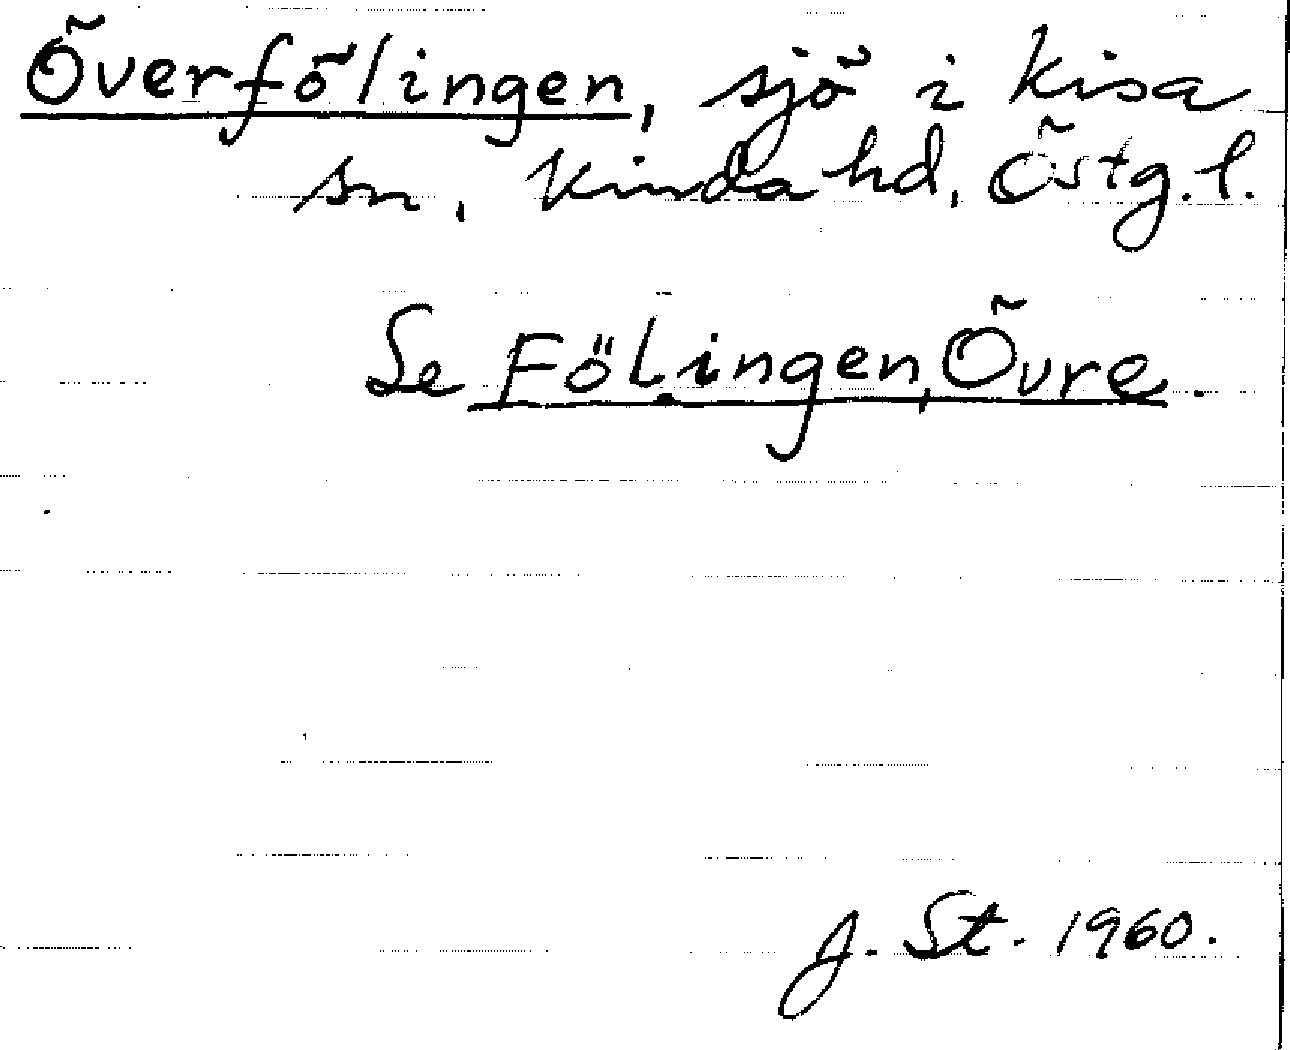 Överfölingen, sjö i Kisa
sn, Kinda hd, Östg.l.
Se Fölingen, Övre.
J. St. 1960.